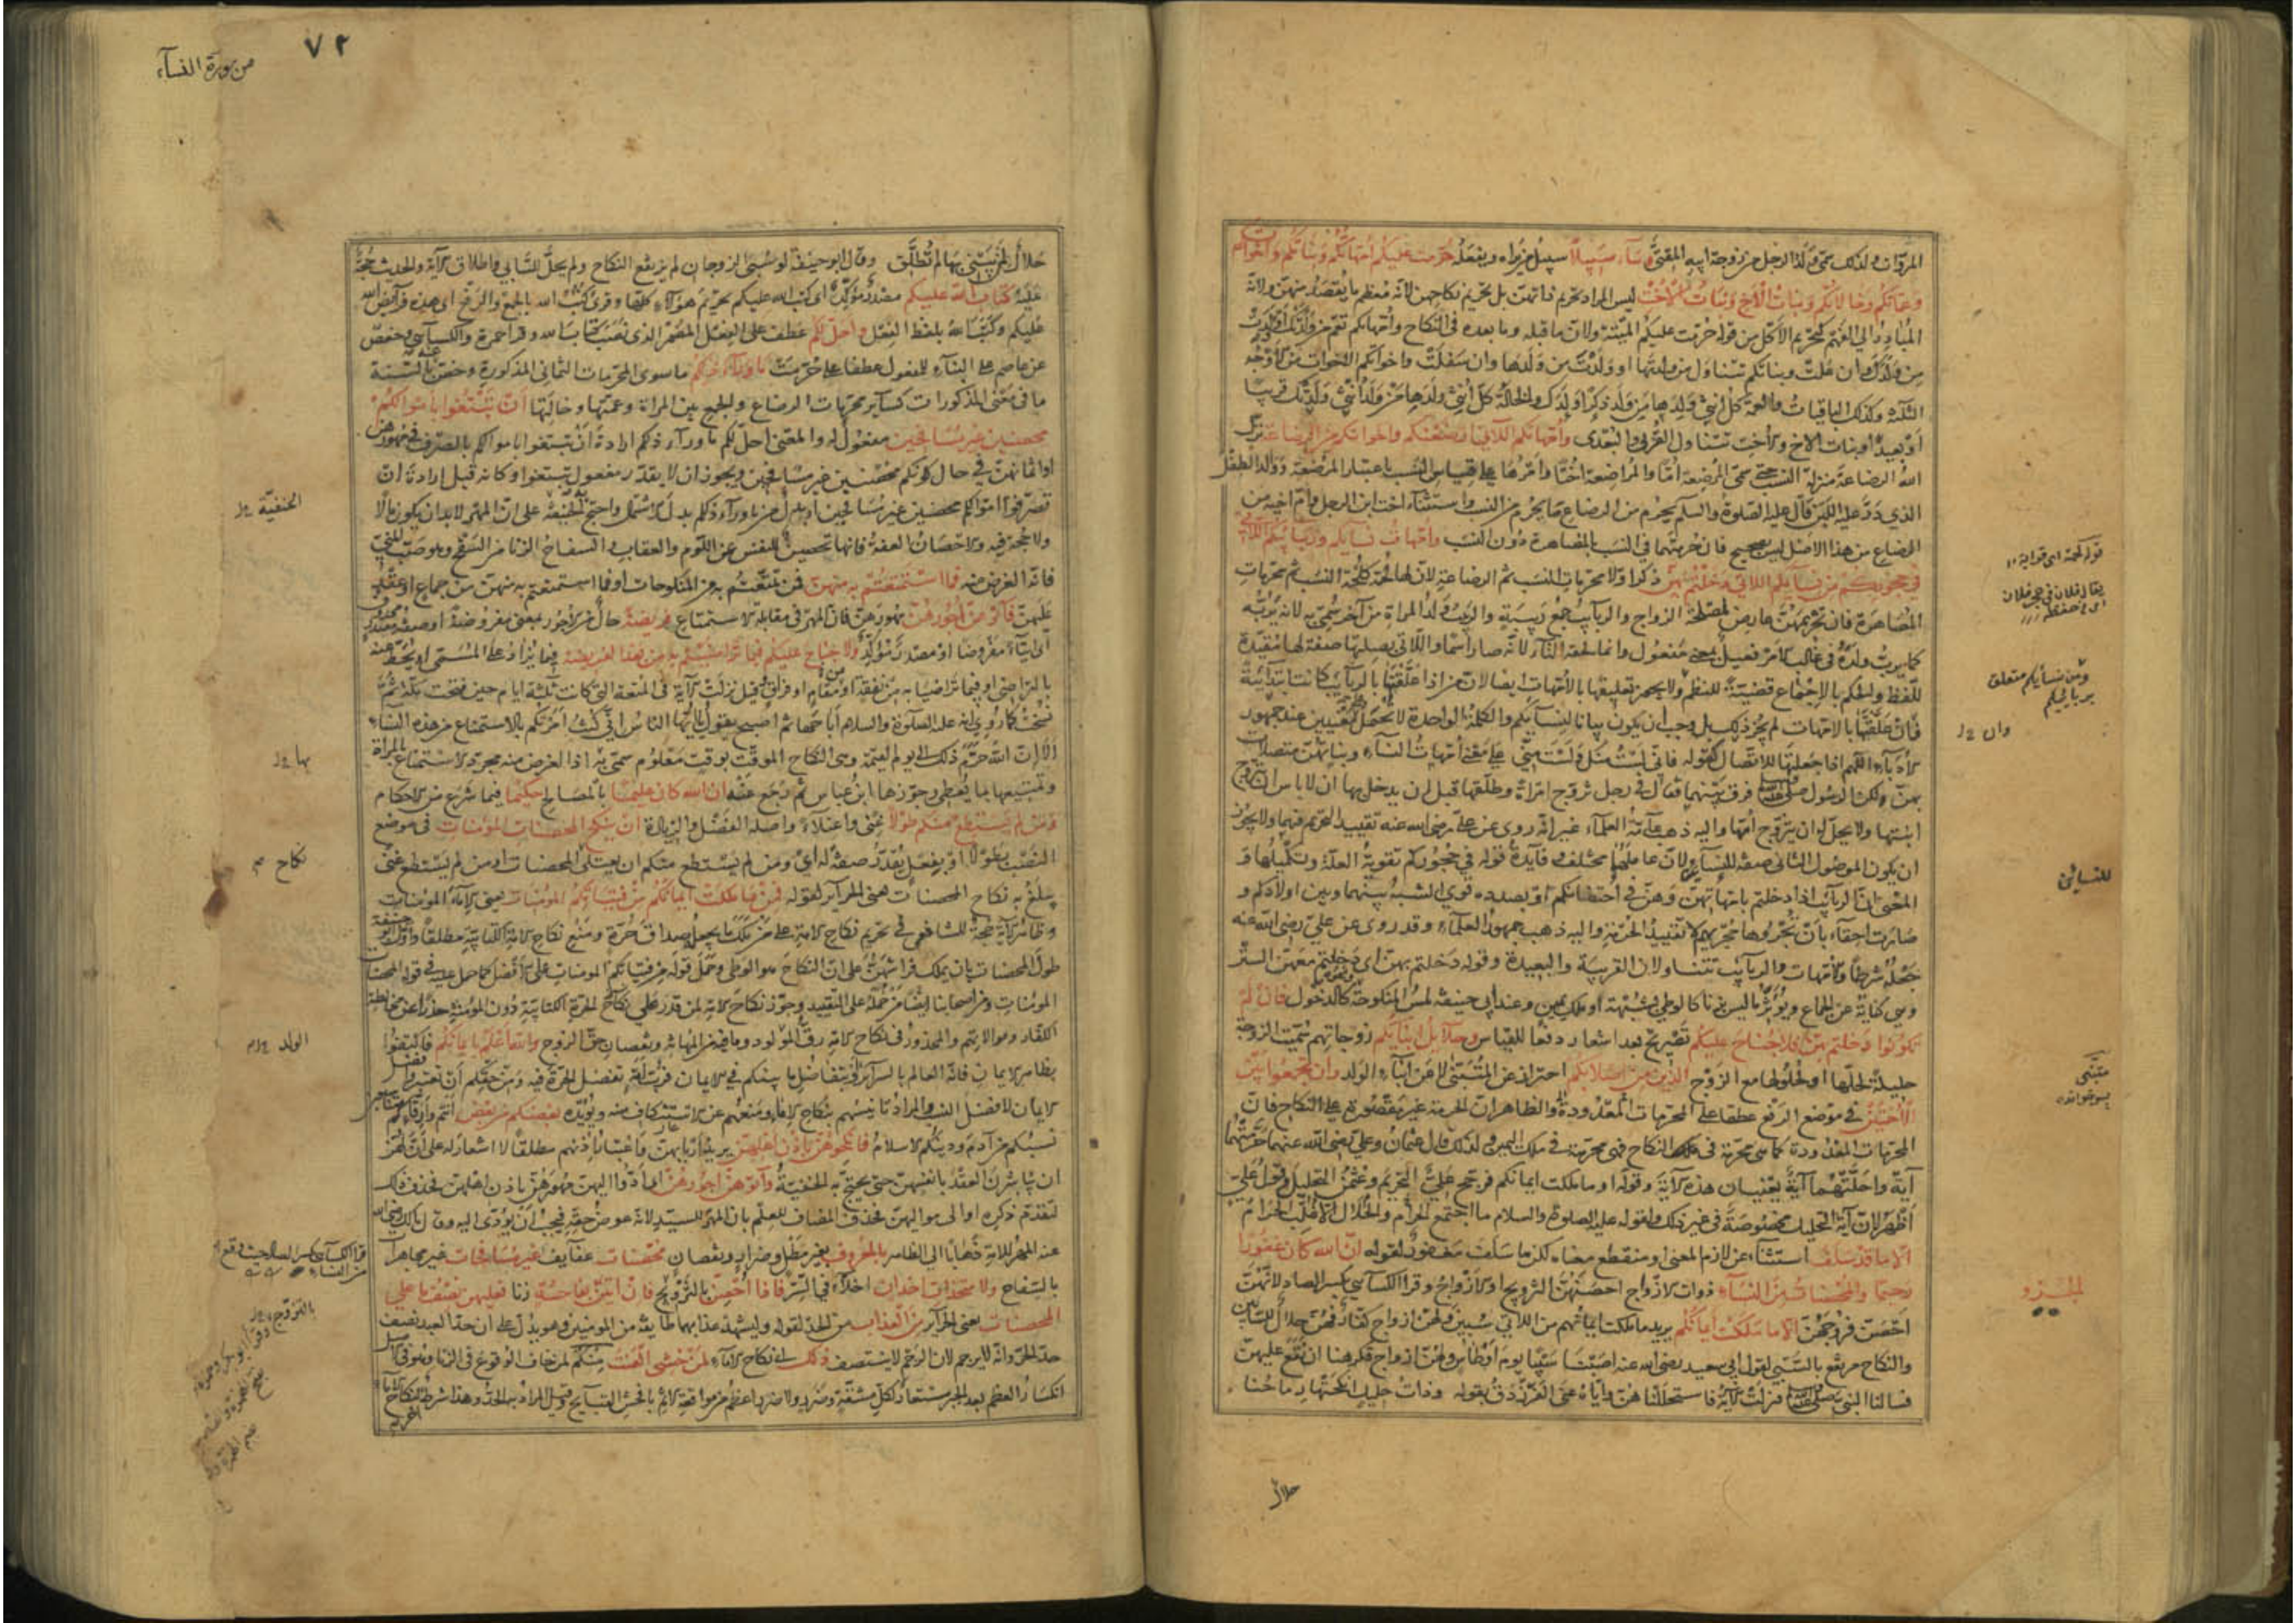 المروات ولذلك سمي ولد الرجل من زوجة ابيه المقتي وساء سبيلا سبيل من يراه ويفعله حرمت عليكم امهاتكم وبناتكم واخواتكم
وعماتكم وخالاتكم وبنات الاخ وبنات الاخت ليس المراد تحريم ذاتهن بل تحريم نكاحهن لانه معظم ما يقصد منهن ولانه
المتبادر الي الفهم كتحريم الاكل من قوله حرمت عليكم الميتة ولان ما قبله وما بعده في النكاح وامهاتكم تعم من ولدتك او ولدت
من ولدك وان علت وبناتكم تتناول من ولدتها او ولدت من ولدها وان سفلت واخواتكم الاخوات من الاوجه
الثلثة وكذلك الباقيات والعمة كل انثي ولدها من ولد ذكرا ولدك والخالة كل انثي ولدها من ولد انثي ولدتك قريبا
او بعيدا وبنات الاخ والاخت تتناول القربي والبعدي وامهاتكم اللاتي ارضعنكم واخواتكم من الرضاعة نزل
الله الرضاعة منزلة النسب حتي سمي المرضعة اما والمراضعة اختا وامرها علي قياس النسب باعتبار المرضعة ووالد الطفل
الذي در عليه اللبن قال عليه الصلوة والسلم يحرم من الرضاع ما يحرم من النسب واستثناء اخت ابن الرجل وام اخيه من
الرضاع من هذا الاصل ليس بصحيح فان حرمتهما في النسب بالمصاهرة دون النسب وامهات نسايكم وربايبكم اللاتي
في حجوركم من نسايكم اللاتي دخلتم بهن ذكر اولا محرمات النسب ثم الرضاعة لان لها لحمة كلحمة النسب ثم محرمات
المصاهرة فان تحريمهن عارض لمصلحة الزواج والربايب جمع ربيبة والربيب ولد المراة من آخر سمي به لانه يربه
كما يرب ولده في غالب الامر فعيل بمعني مفعول وانما لحقه التاء لانه صار اسما واللاتي بصلتها صفة لها مقيدة
للفظ والحكم بالاجماع قضية للنظم ولا يجوز تعليقها بالامهات ايضا لان من اذا علقتها بالربايب كانت ابتدائية
فان علقتها بالامهات لم يجز ذلك بل وجب ان يكون بيانا لنسايكم والكلمة الواحدة لا تحمل علي معنيين عند جمهور
الادباء اللهم اذا جعلتها للاتصال كقوله فاني لست منك ولست مني علي معني امهات النساء وبناتهن متصلات
بهن ولكن الرسول صلي الله عليه وسلم فرق بينهما فقال في رجل تزوج امراة وطلقها قبل ان يدخل بها انه لا باس ان يتزوج
ابنتها ولا يحل له ان يتزوج امها واليه ذهب عامة العلماء غير انه روي عن علي رضي الله عنه تقييد التحريم فيهما ولا يجوز
ان يكون الموصول الثاني صفة للنساءين لان عاملهما مختلف وفايدة قوله في حجوركم تقوية العلة وتكميلها و
المعني ان الربايب اذا دخلتم بامهاتهن وهن في احتضانكم او بصدده قوي الشبه بينهما وبين اولادكم و
صارت احقاء بان تجروها مجريهم لا تقييد الحرمة واليه ذهب جمهور العلماء وقد روي عن علي رضي الله عنه
جعله شرطا والامهات والربايب تتناولان القريبة والبعيدة وقوله دخلتم بهن اي دخلتم معهن الستر
وهي كناية عن الجماع ويؤثر ما ليس بزنا كالوطي بشبهة او ملك يمين وعند ابي حنيفة لمس المنكوحة كالدخول فان لم
تكونوا دخلتم بهن فلا جناح عليكم تصريح بعد اشعار دفعا للقياس وحلايل ابنايكم زوجاتهم سميت الزوجة
حليلة لحلها او لحلولها مع الزوج الذين من اصلابكم احتراز عن المتبني لا عن ابناء الولد وان تجمعوا بين
الاختين في موضع الرفع عطفا علي المحرمات المعدودة والظاهر ان الحرمة غير مقصورة علي النكاح فان
المحرمات المعدودة كما هي محرمة في النكاح فهي محرمة في ملك اليمين ولذلك قال عثمان وعلي رضي الله عنهما حرمتهما
آية واحلتهما آية يعنيان هذه الاية وقوله او ما ملكت ايمانكم فرجح علي التحريم وعثمن التحليل وقول علي
اظهر لان آية التحليل مخصوصة في غير ذلك ولقوله عليه الصلوة والسلام ما اجتمع الحرام والحلال الا غلب الحرام
الا ما قد سلف استثناء عن لازم المعني او منقطع معناه لكن ما سلف مغفور لقوله ان الله كان غفورا
رحيما والمحصنات من النساء ذوات الازواج احصنهن التزويج او الازواج وقرا الكسآئي بكسر الصاد لانهن
احصن فروجهن الا ما ملكت ايمانكم يريد ما ملكت ايمانهم من اللاتي سبين ولهن ازواج كفار فهن حلال للسابين
والنكاح مرتفع بالسبي لقول ابي سعيد رضي الله عنه اصبنا سبيا يوم اوطاس ولهن ازواج فكرهنا ان نقع عليهن
فسالنا النبي صلي الله عليه وسلم فنزلت الاية فاستحللناهن واياه عني الفرزدق بقوله وذات حليل انكحتها رماحنا
حلال
قوله لحمة اي قرابة
يقال فلان في حجر فلان
اي في حفظه
ومن نسايكم متعلق
بربايبكم
وان
للنسائين
متبني
الجزو
من سورة النساء
٧٢
حلال لمن يبني بها لم تطلق وقال ابو حنيفة لو سبي الزوجان لم يرتفع النكاح ولم يحل للسابي واطلاق الاية والحديث حجة
عليه كتاب الله عليكم مصدر مؤكد اي كتب الله عليكم تحريم هؤلاء كتابا وقري كتب الله بالجمع والرفع اي هذه فرايض الله
عليكم وكتب الله بلفظ الفعل واحل لكم عطف علي الفعل المضمر الذي نصب كتاب الله وقرا حمزة والكسآئي وحفص
عن عاصم علي البناء للمفعول عطفا علي حرمت ما وراء ذلكم ما سوي المحرمات الثماني المذكورة وخص عنه بالسنة
ما في معني المذكورات كسآير محرمات الرضاع والجمع بين المراة وعمتها وخالتها ان تبتغوا باموالكم
محصنين غير مسافحين مفعول له والمعني احل لكم ما وراء ذلكم ارادة ان تبتغوا باموالكم بالصرف في مهورهن
او اثمانهن في حال كونكم محصنين غير مسافحين ويجوز ان لا يقدر مفعول تبتغوا وكانه قيل ارادة ان
تصرفوا اموالكم محصنين غير مسافحين او بدل من ما وراء ذلكم بدل الاشتمال واحتج به الحنفية علي ان المهر لا بد ان يكون مالا
ولا حجة فيه والاحصان العفة فانها تحصين للنفس عن اللوم والعقاب والسفاح الزنا من السفح وهو صب المني
فانه الغرض منه فما استمتعتم به منهن فمن تمتعتم به من المنكوحات او فما استمتعتم به منهن من جماع او عقد
عليهن فآتوهن اجورهن مهورهن فان المهر في مقابلة الاستمتاع فريضة حال من الاجور بمعني مفروضة او صفة مصدر محذوف
اي ايتاء مفروضا او مصدر مؤكد ولا جناح عليكم فيما تراضيتم به من بعد الفريضة فيما يزاد علي المسمي او يحط عنه
بالتراضي او فيما تراضيا به من نفقة او مقام او فراق وقيل نزلت الاية في المتعة التي كانت ثلثة ايام حين فتحت مكة ثم
نسخت كما روي انه عليه الصلوة والسلام اباحها ثم اصبح يقول يا ايها الناس اني كنت امرتكم بالاستمتاع من هذه النساء
الا ان الله حرم ذلك الي يوم القيمة وهي النكاح الموقت بوقت معلوم سمي به اذا الغرض منه مجرد الاستمتاع بالمراة
وتمتيعها بما يعطي وجوزها ابن عباس ثم رجع عنه ان الله كان عليما بالمصالح حكيما فيما شرع من الاحكام
ومن لم يستطع منكم طولا غني واعتلاء واصله الفضل والزيادة ان ينكح المحصنات المؤمنات في موضع
النصب بطولا او بفعل يقدر صفة له اي ومن لم يستطع منكم ان يعتلي نكاح المحصنات او من لم يستطع غني
يبلغ به نكاح المحصنات يعني الحرآير لقوله فمن ما ملكت ايمانكم من فتياتكم المؤمنات يعني الاماء المؤمنات
وظاهر الاية حجة للشافعي في تحريم نكاح الامة علي من ملك ما يجعله صداق حرة ومنع نكاح الامة الكتابية مطلقا واول ابو حنيفة
طول المحصنات بان يملك فراشهن علي ان النكاح هو الوطي وحمل قوله من فتياتكم المؤمنات علي الافضل كما حمل عليه في قوله المحصنات
المؤمنات ومن اصحابنا ايضا من حمله علي التقييد وجوز نكاح الامة لمن قدر علي نكاح الحرة الكتابية دون المؤمنة حذرا عن مخالطة
الكفار وموالاتهم والمحذور في نكاح الامة رق المولود وما فيه من المهانة ونقصان حق الزوج والله اعلم بايمانكم فاكتفوا
بظاهر الايمان فانه العالم بالسرآير وبتفاضل ما بينكم في الايمان فرب امة تفضل الحرة فيه ومن حقكم ان تعتبروا فضل
الايمان لا فضل النسب والمراد تانيسهم بنكاح الاماء ومنعهم عن الاستنكاف منه ويؤيده بعضكم من بعض انتم وارقاؤكم متناسبون
نسبكم من آدم ودينكم الاسلام فانكحوهن باذن اهلهن يريد اربابهن واعتبار اذنهم مطلقا لا اشعار له علي ان لهن
ان يباشرن العقد بانفسهن حتي يحتج به الحنفية وآتوهن اجورهن اي ادوا اليهن مهورهن باذن اهلهن فحذف ذلك
لتقدم ذكره او الي مواليهن فحذف المضاف للعلم بان المهر للسيد لانه عوض حقه فيجب ان يؤدي اليه وقال مالك رضي الله
عنه المهر للامة ذهابا الي الظاهر بالمعروف بغير مطل وضرار ونقصان محصنات عفايف غير مسافحات غير مجاهرات
بالسفاح ولا متخذات اخدان اخلاء في السر فاذا احصن بالتزويج فان اتين بفاحشة زنا فعليهن نصف ما علي
المحصنات يعني الحرآير من العذاب من الحد لقوله وليشهد عذابهما طايفة من المؤمنين وهو يدل علي ان حد العبد نصف
حد الحر وانه لا يرجم لان الرجم لا يتنصف ذلك اي نكاح الاماء لمن خشي العنت منكم لمن خاف الوقوع في الزنا وهو في الاصل
انكسار العظم بعد الجبر مستعار لكل مشقة وضرر ولا ضرر اعظم من مواقعة الاثم بافحش القبآيح وقيل المراد به الحد وهذا شرط لنكاح الاماء
الحنفية
بها
نكاح
الولد
قرا الكسآئي بكسر الصاد حيث وقع
من النساء
بالتزوج